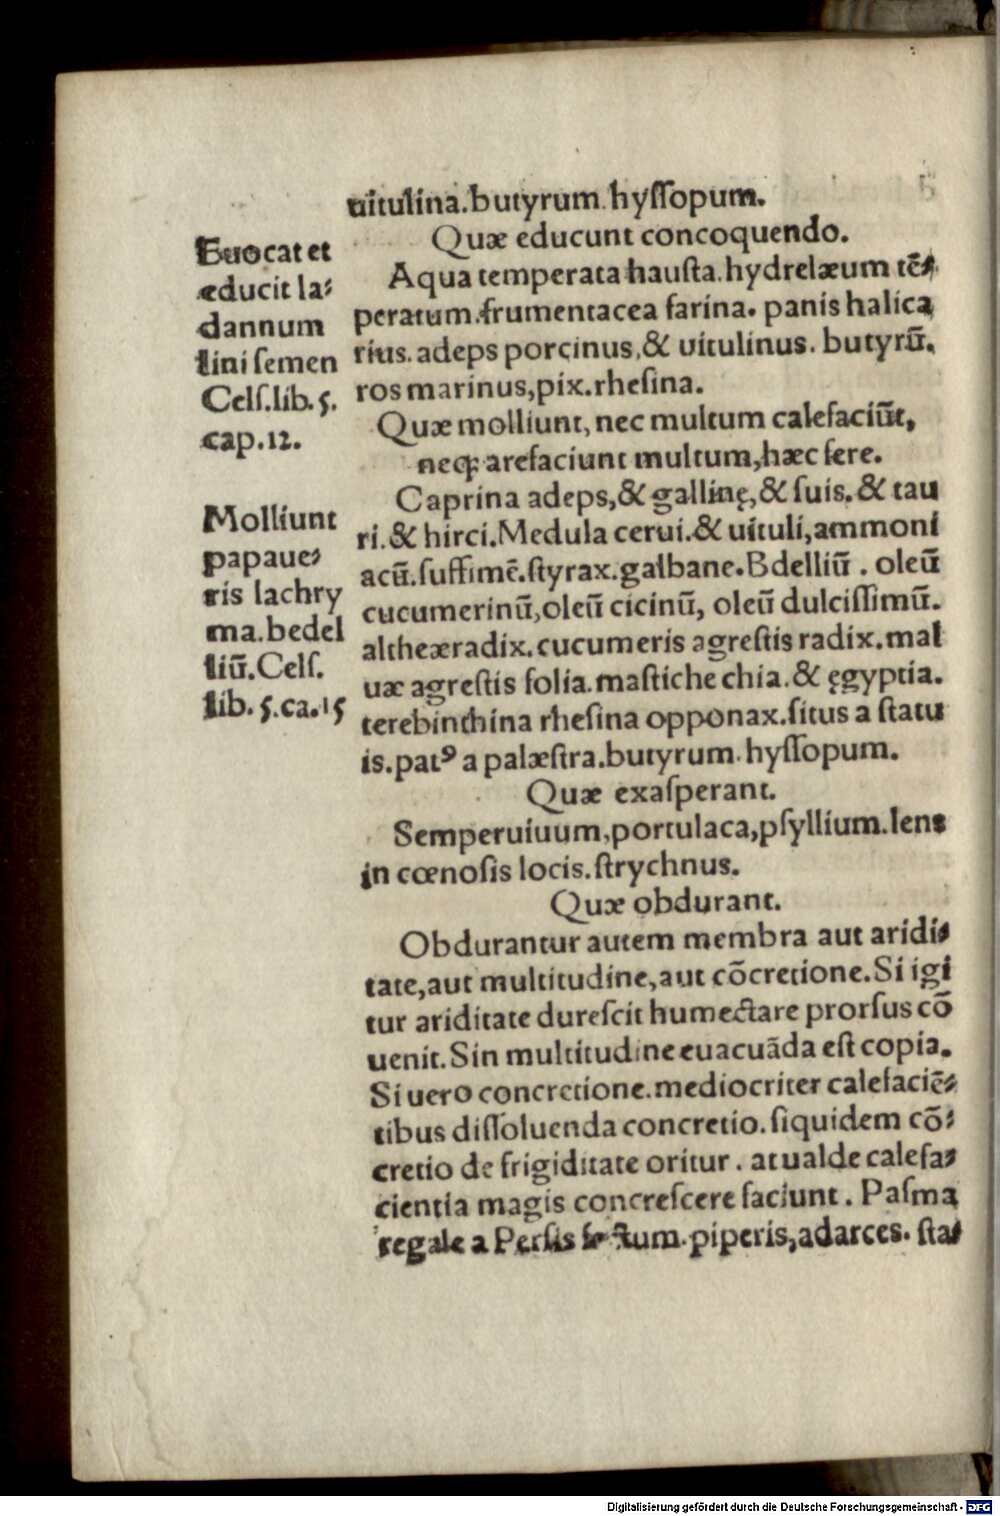 uitulina.butyrum.hyſſopum.
Quæ educunt concoquendo.
Aqua temperata hauſta.hydrelæum tē⸗
peratum.frumentacea farina. panis halica
rius. adeps porcinus,& uitulinus. butyrū.
ros marinus,pix.rheſina.
Quæ molliunt, nec multum calefaciūt,
neqꝫ arefaciunt multum,hæc fere.
Caprina adeps,& gallinę,& ſuis. & tau
ri.& hirci.Medula cerui.& uituli,ammoni
acū.ſuffimē.ſtyrax.galbane.Bdelliū . oleū
cucumerinū,oleū cicinū, oleū dulciſſimū.
altheæ radix. cucumeris agreſtis radix. mal
uæ agreſtis folia. maſtiche chia. & ęgyptia.
terebinthina rheſina opponax.ſitus a ſtatu
is.patꝰ a palæſtra.butyrum.hyſſopum.
Quæ exaſperant.
Semperuiuum,portulaca,pſyllium.lens
in cœnoſis locis.ſtrychnus.
Quæ obdurant.
Obdurantur autem membra aut aridi⸗
tate,aut multitudine,aut cōcretione.Si igi
tur ariditate dureſcit humectare prorſus cō
uenit.Sin multitudine euacuāda eſt copia.
Si uero concretione.mediocriter calefaciē⸗
tibus diſſoluenda concretio. ſiquidem cō⸗
cretio de frigiditate oritur . at ualde calefa⸗
cientia magis concreſcere faciunt . Paſma
regale a Perſis ſectum.piperis,adarces. ſta⸗
Euocat et
educit la⸗
dannum
lini ſemen
Celſ.lib.5.
cap.12.
Molliunt
papaue⸗
ris lachry
ma.bedel
liū.Celſ.
lib.5.ca.15
Digitalisierung gefördert durch die Deutsche Forschungsgemeinschaft - DFG